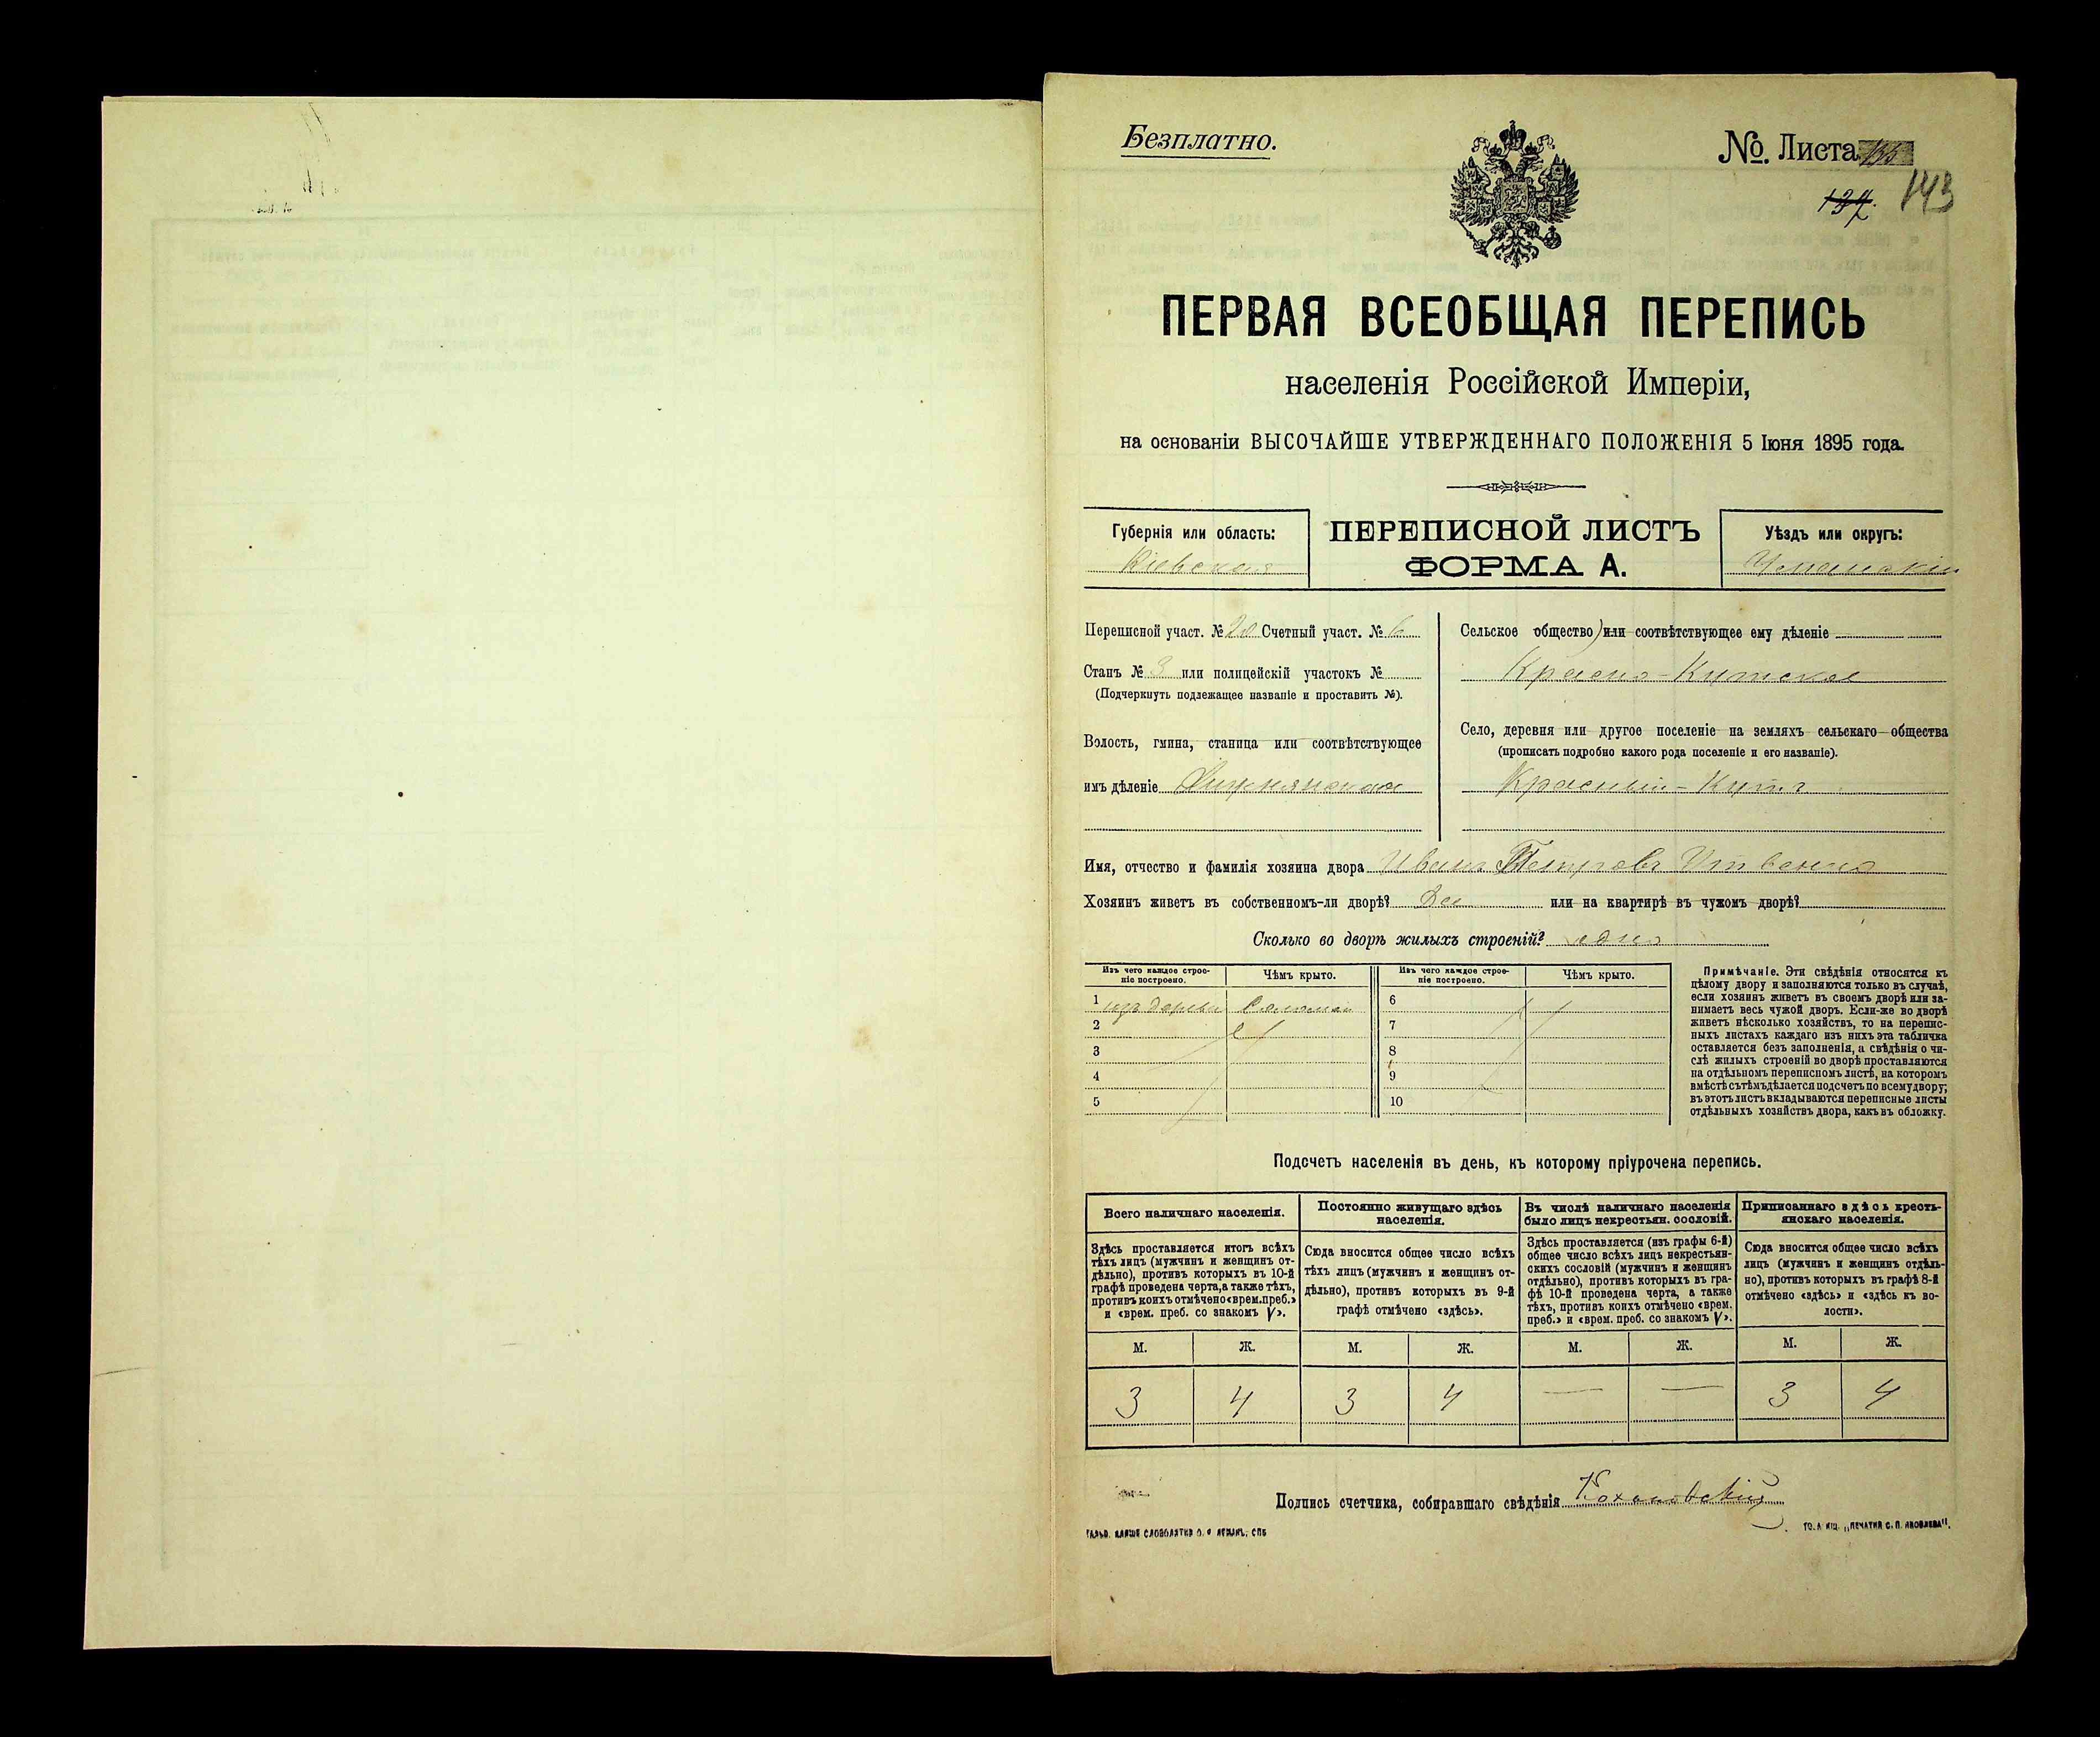 Безплатно.
№. Листа
137. 143
ПЕРВАЯ ВСЕОБЩАЯ ПЕРЕПИСЬ
населенія Россійской Имперіи,
на основаніи ВЫСОЧАЙШЕ УТВЕРЖДЕННАГО ПОЛОЖЕНІЯ 5 Іюня 1895 года.
Губернія или область:
Кіевская
ПЕРЕПИСНОЙ ЛИСТЪ
ФОРМА А.
Уѣздъ или округъ:
Уманскій
Переписной участ. № 20 Счетный участ. № 6
Станъ № 3 или полицейскій участокъ №
(Подчеркнуть подлежащее названіе и проставить №).
Волость, гмина, станица или соотвѣтствующее
имъ дѣленіе
Сельское общество) или соотвѣтствующее ему дѣленіе
Красно-Кутское
Село, деревня или другое поселеніе на земляхъ сельскаго общества
(прописать подробно какого рода поселеніе и его названіе).
Красный-Кутъ
Имя, отчество и фамилія хозяина двора Иванъ Петровъ
Хозяинъ живетъ въ собственномъ-ли дворѣ? или на квартирѣ въ чужомъ дворѣ?
Сколько во дворѣ жилыхъ строеній? одно
Изъ чего каждое строе-
ніе построено.
Чѣмъ крыто.
Изъ чего каждое строе-
ніе построено.
Чѣмъ крыто.
1 изъ дерева Соломой 6
2 7
3 8
4 9
5 10
Примѣчаніе. Эти свѣдѣнія относятся къ
цѣлому двору и заполняются только въ случаѣ,
если хозяинъ живетъ въ своемъ дворѣ или за-
нимаетъ весь чужой дворъ. Если-же во дворѣ
живетъ нѣсколько хозяйствъ, то на перепис-
ныхъ листахъ каждаго изъ нихъ эта табличка
оставляется безъ заполненія, а свѣдѣнія о чи-
слѣ жилыхъ строеній во дворѣ проставляются
на отдѣльномъ переписномъ листѣ, на которомъ
вмѣстѣ съ тѣмъ дѣлается подсчетъ по всему двору;
въ этотъ листъ вкладываются переписные листы
отдѣльныхъ хозяйствъ двора, какъ въ обложку.
Подсчетъ населенія въ день, къ которому пріурочена перепись.
Всего наличнаго населенія.
Здѣсь проставляется итогъ всѣхъ
тѣхъ лицъ (мужчинъ и женщинъ от-
дѣльно), противъ которыхъ въ 10-й
графѣ проведена черта, а также тѣхъ,
противъ коихъ отмѣчено «врем. преб.»
и «врем. преб. со знакомъ V».
Постоянно живущаго здѣсь
населенія.
Сюда вносится общее число всѣхъ
тѣхъ лицъ (мужчинъ и женщинъ от-
дѣльно), противъ которыхъ въ 9-й
графѣ отмѣчено «здѣсь».
Въ числѣ наличнаго населенія
было лицъ некрестьян. сословій.
Здѣсь проставляется (изъ графы 6-й)
общее число всѣхъ лицъ некрестьян-
скихъ сословій (мужчинъ и женщинъ
отдѣльно), противъ которыхъ въ гра-
фѣ 10-й проведена черта, а также
тѣхъ, противъ коихъ отмѣчено «врем.
преб.» и «врем. преб. со знакомъ V».
Приписаннаго здѣсь кресть-
янскаго населенія.
Сюда вносится общее число всѣхъ
лицъ (мужчинъ и женщинъ отдѣль-
но), противъ которыхъ въ графѣ 8-й
отмѣчено «здѣсь» и «здѣсь къ во-
лости».
М. Ж. М. Ж. М. Ж. М. Ж.
3 4 3 4 — — 3 4
Подпись счетчика, собиравшаго свѣдѣнія Кохановскій